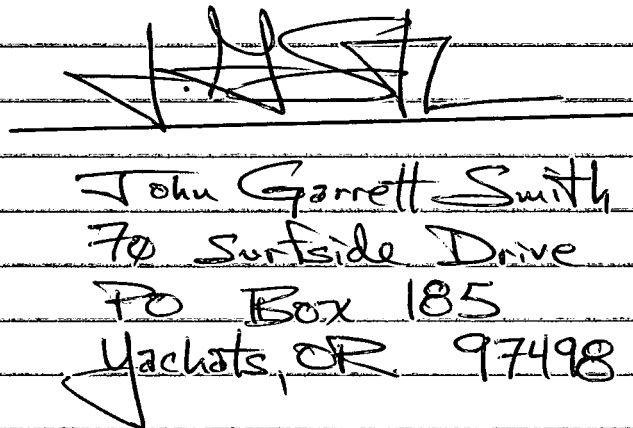 John Garrett Smith
70 Surfside Drive
PO Box 185
Yachats, OR 97498